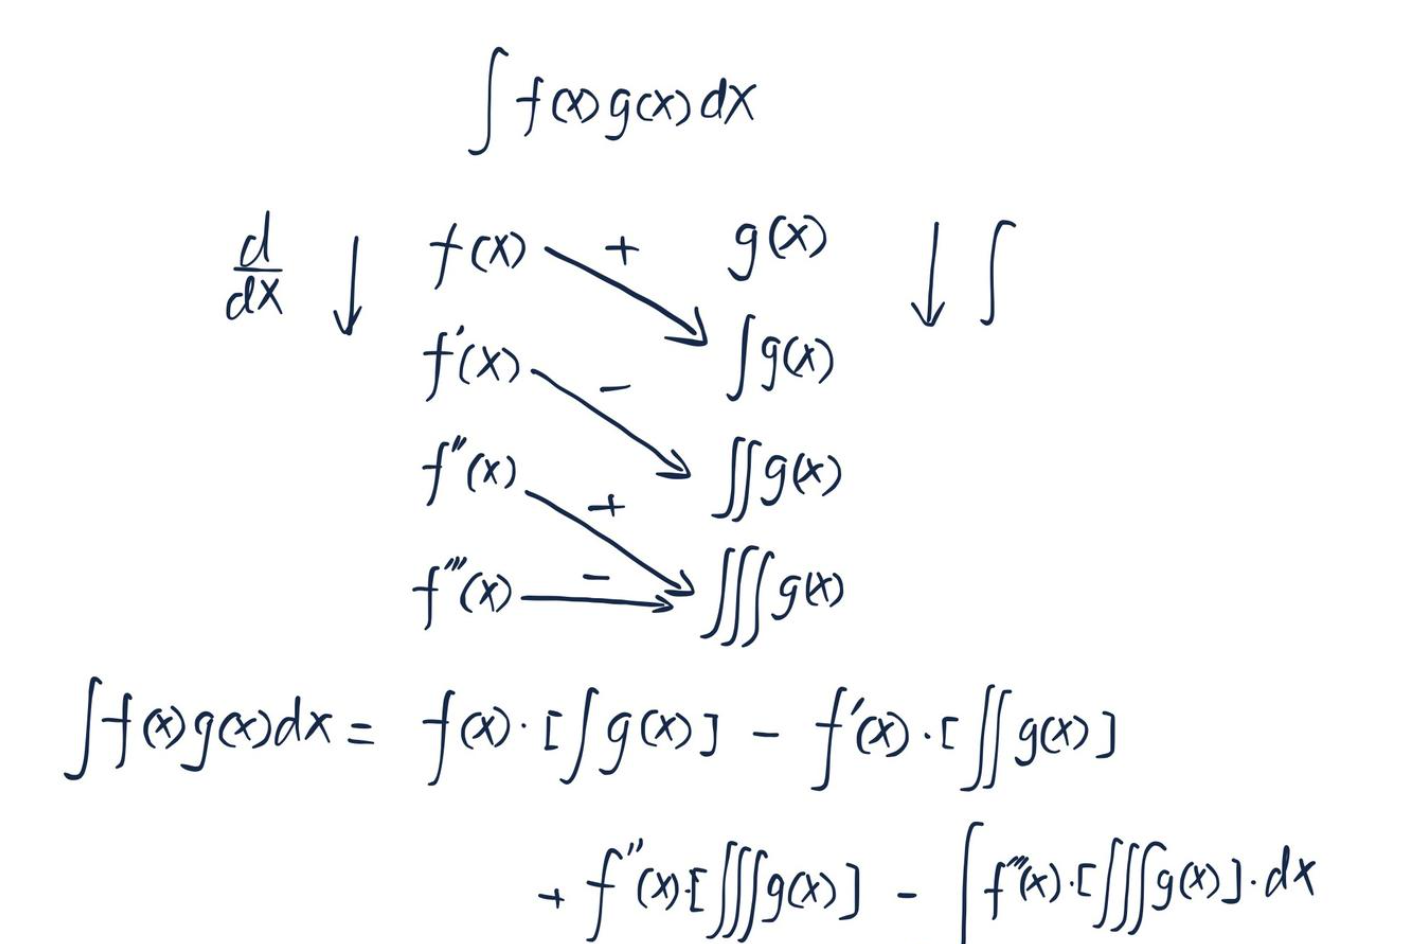 ∫ f(x) g(x) dx
d/dx ↓ f(x) + g(x) ↓ ∫
f'(x) − ∫g(x)
f''(x) + ∬g(x)
f'''(x) − ∭g(x)
∫f(x)g(x)dx = f(x)·[∫g(x)] − f'(x)·[∬g(x)]
+ f''(x)·[∭g(x)] − ∫f'''(x)·[∭g(x)]·dx